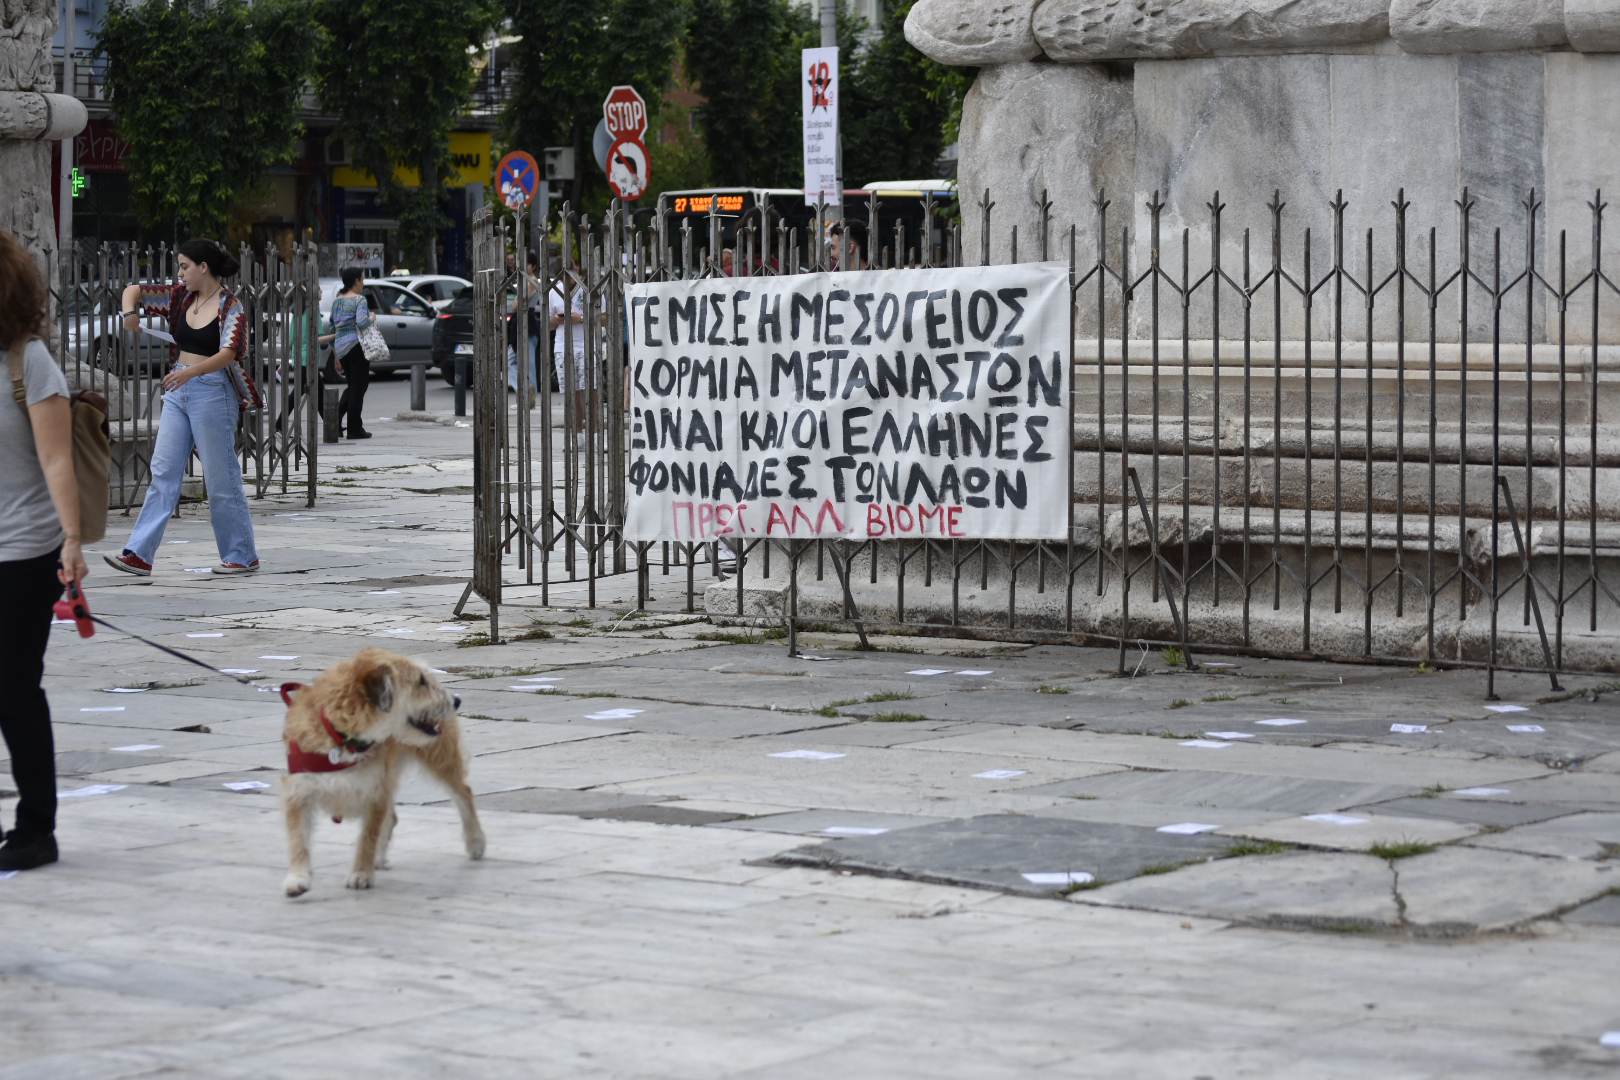 ΓΕΜΙΣΕ Η ΜΕΣΟΓΕΙΟΣ
ΚΟΡΜΙΑ ΜΕΤΑΝΑΣΤΩΝ
ΕΙΝΑΙ ΚΑΙ ΟΙ ΕΛΛΗΝΕΣ
ΦΟΝΙΑΔΕΣ ΤΩΝ ΛΑΩΝ
ΠΡΩΤ. ΑΛΛ. ΒΙΟΜΕ
STOP
12
27